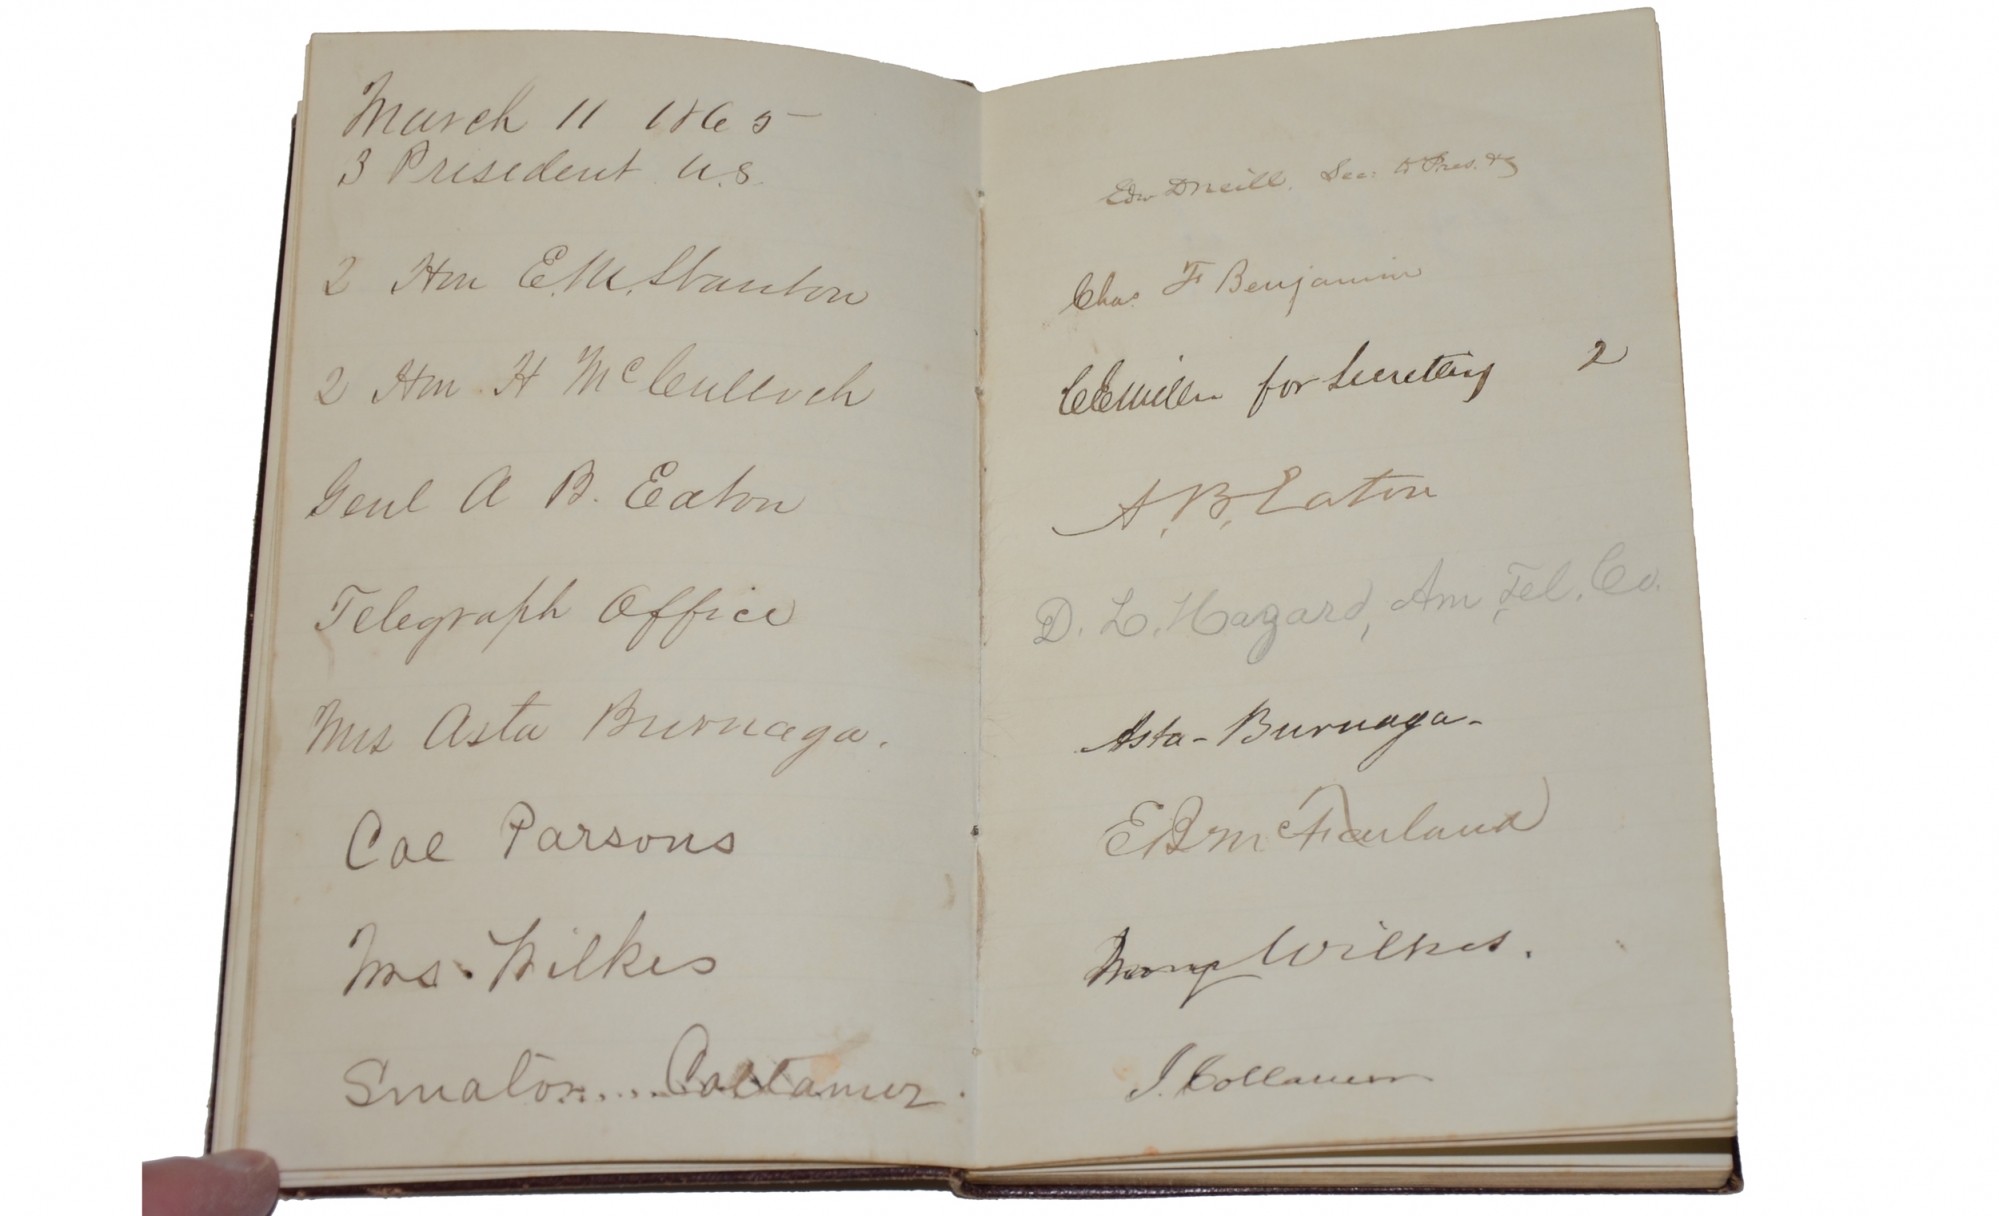 March 11 1865
3 President U.S.
2 Hon E.M. Stanton
2 Hon H McCulloch
Genl A B. Eaton
Telegraph Office
Mrs Asta Burnaga.
Col Parsons
Mrs. Wilkes
Senator.... Collamer.
Edw D Neill. Sec: to Pres.
Chas. F Benjamin
for Secretary 2
A. B. Eaton
D. L. Hazard, Am, Tel. Co.
Asta - Burnaga -
E B McFarland
Mary Wilkes.
J. Collamer